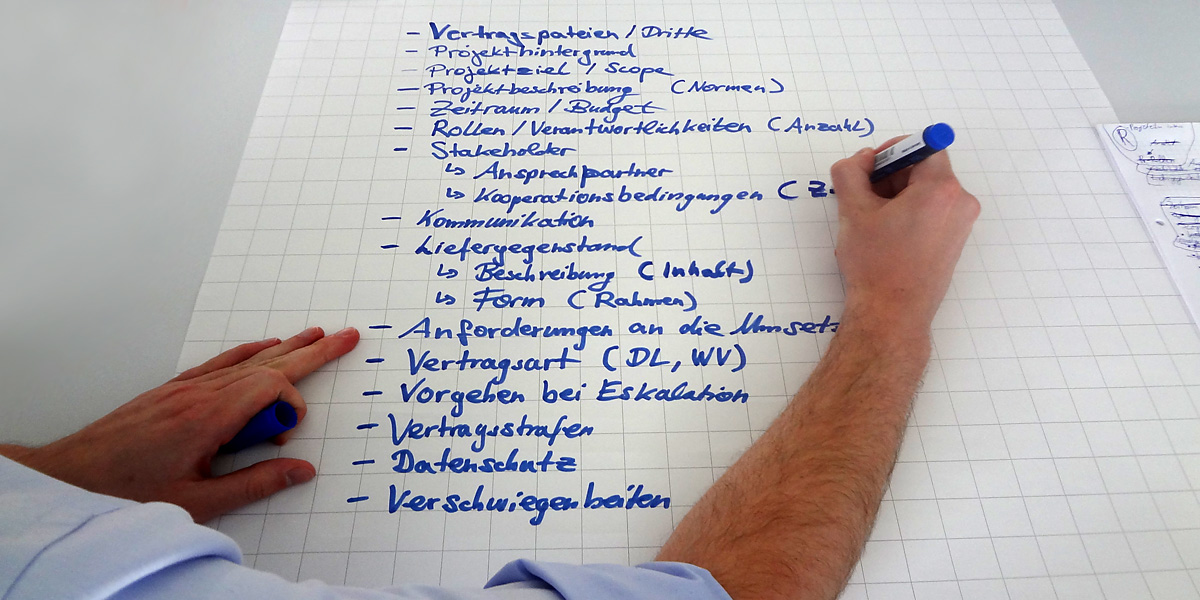 - Vertragspateien / Dritte
- Projekthintergrund
- Projektziel / Scope
- Projektbeschreibung (Normen)
- Zeitraum / Budget
- Rollen / Verantwortlichkeiten (Anzahl)
- Stakeholder
↳ Ansprechpartner
↳ Kooperationsbedingungen (
- Kommunikation
- Liefergegenstand
↳ Beschreibung (Inhalt)
↳ Form (Rahmen)
- Anforderungen an die
- Vertragsart (DL, WV)
- Vorgehen bei Eskalation
- Vertragsstrafen
- Datenschutz
- Verschwiegenheiten